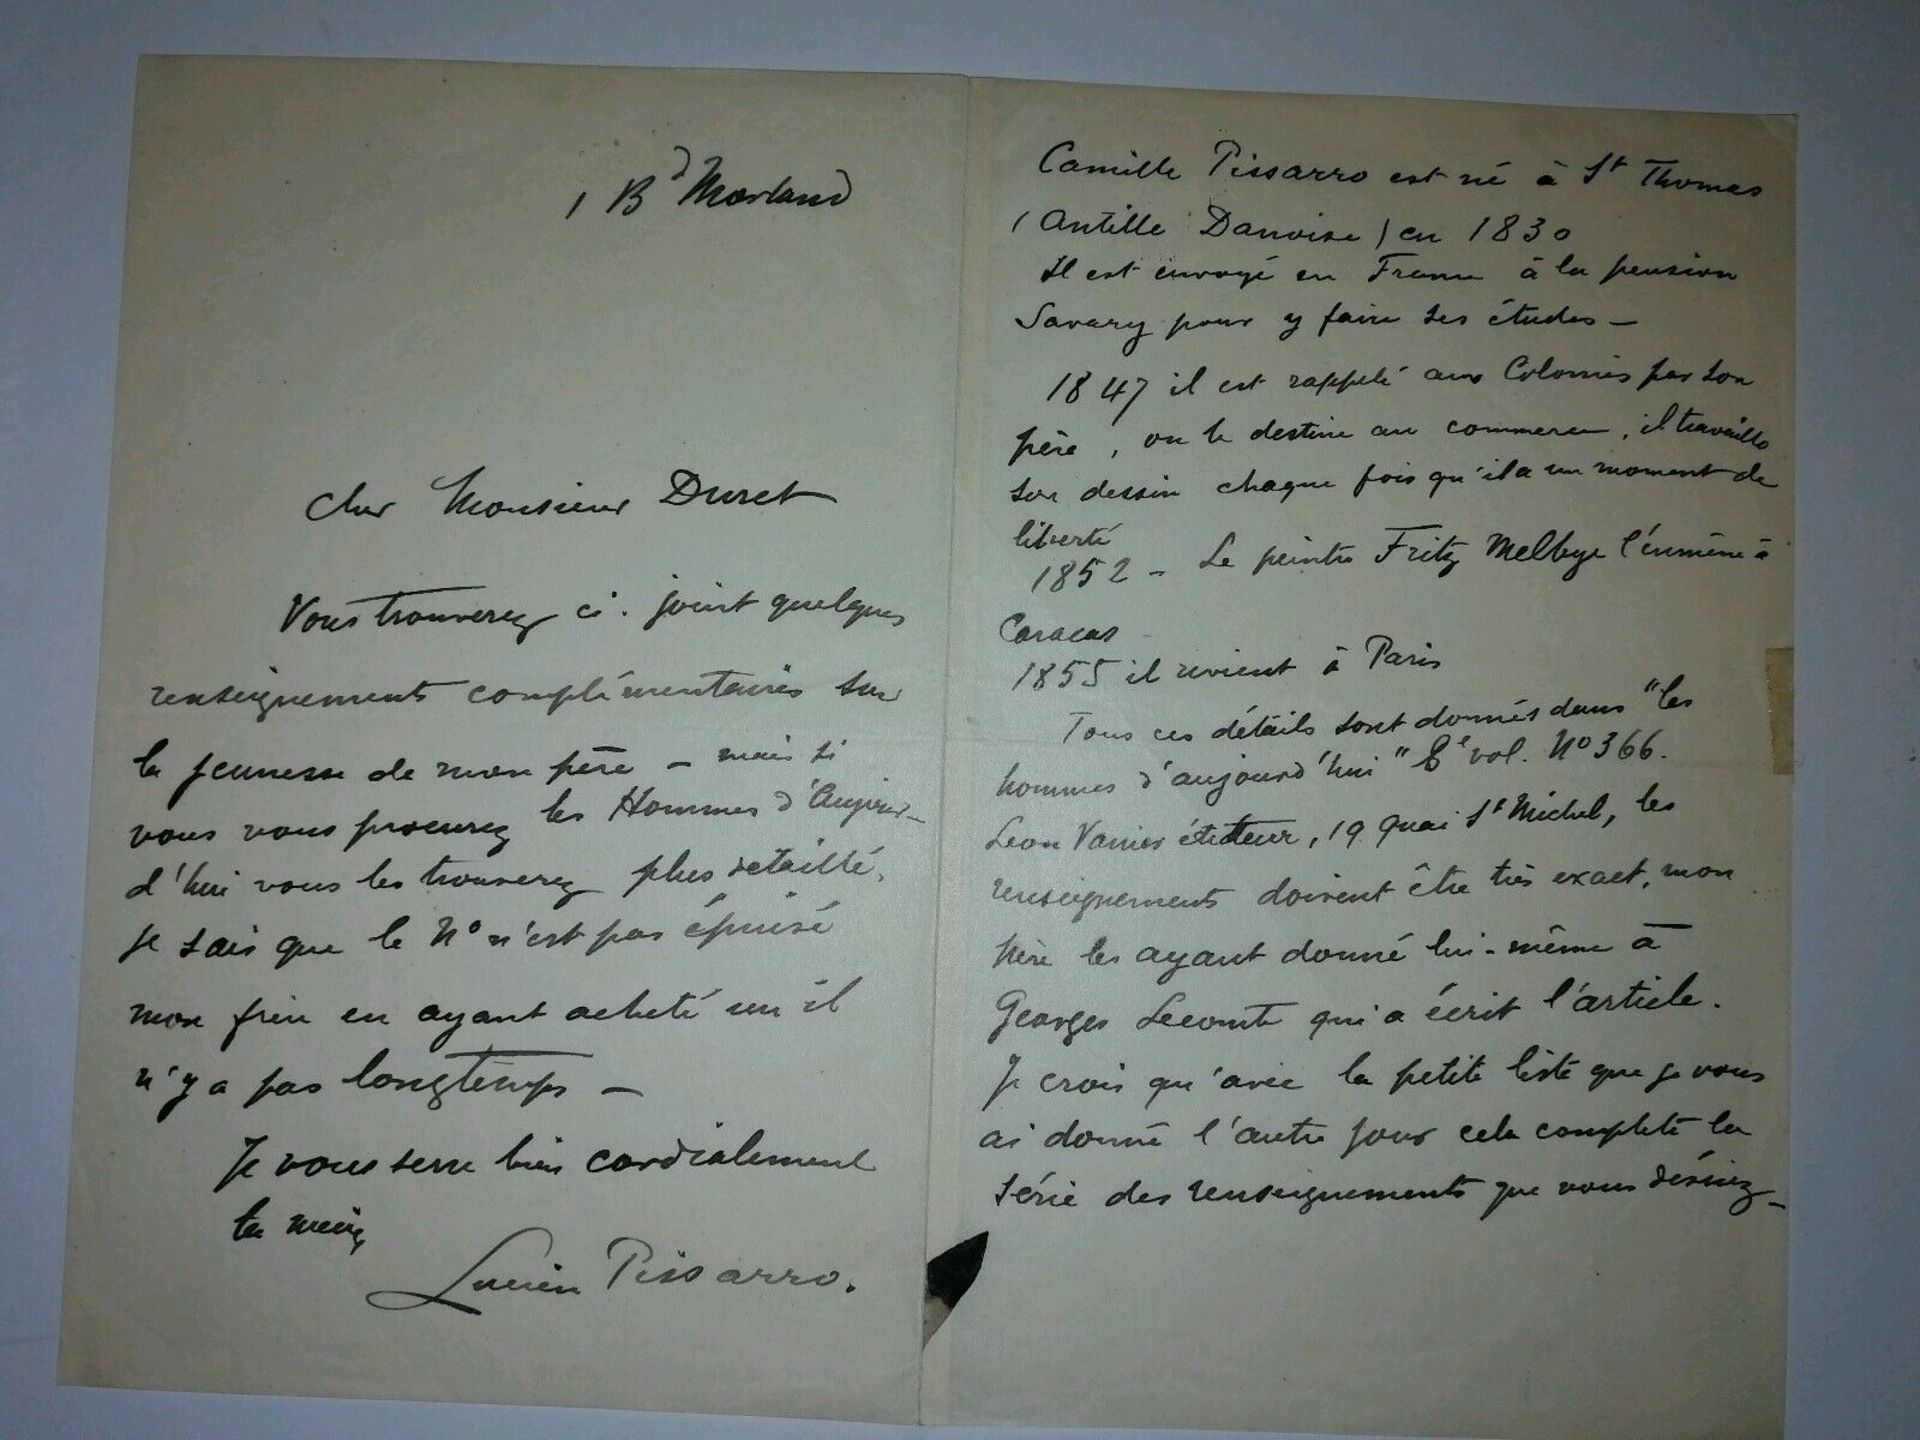 1 Bd Morland
Cher Monsieur Duret
Vous trouverez ci-joint quelques
renseignements complémentaires sur
la jeunesse de mon père – mais si
vous vous procurez les Hommes d'Aujour-
d'hui vous les trouverez plus détaillé.
Je sais que le No n'est pas épuisé
mon frère en ayant acheté un il
n'y a pas longtemps –
Je vous serre bien cordialement
la main
Lucien Pissarro.
Camille Pissarro est né à St Thomas
(Antille Danoise) en 1830
Il est envoyé en France à la pension
Savary pour y faire ses études –
1847 il est rappelé aux Colonies par son
père, on le destine au commerce, il travaille
son dessin chaque fois qu'il a un moment de
liberté
1852 – Le peintre Fritz Melbye l'emmène à
Caracas
1855 il revient à Paris
Tous ces détails sont donnés dans "les
hommes d'aujourd'hui" 8e vol. No 366.
Leon Vanier éditeur, 19 Quai St Michel, les
renseignements doivent être très exact, mon
père les ayant donné lui-même à
Georges Lecomte qui a écrit l'article.
Je crois qu'avec la petite liste que je vous
ai donné l'autre jour cela complete la
série des renseignements que vous désirez –